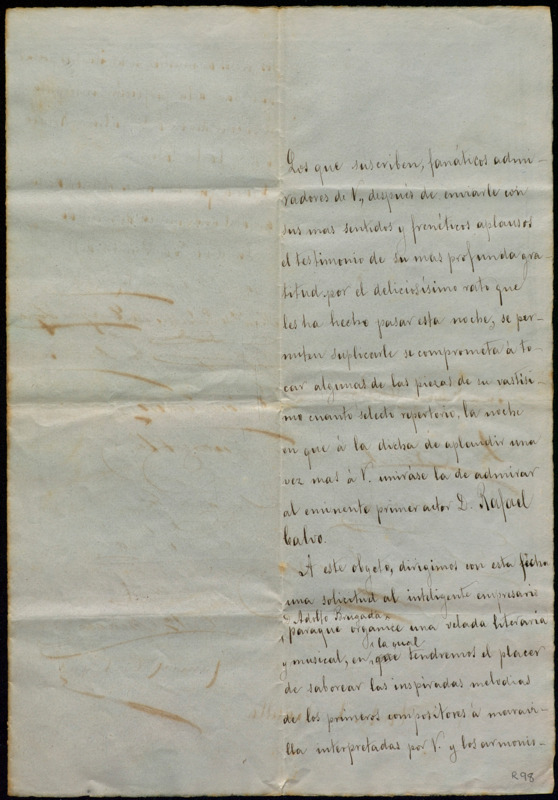 Los que suscriben, fanáticos admi-
radores de V., después de enviarle con
sus mas sentidos y frenéticos aplausos
el testimonio de su mas profunda gra-
titud, por el deliciosísimo rato que
les ha hecho pasar esta noche, se per-
miten suplicarle se comprometa á to-
car algunas de las piezas de su vastísi-
mo cuanto selecto repertorio, la noche
en que á la dicha de aplaudir una
vez mas á V. uniráse la de admirar
al eminente primer actor D. Rafael
Calvo.
Á este objeto, dirigimos con esta fecha
una solicitud al inteligente empresario
D. Adolfo Bragada,
paraque organice una velada literaria
la cual
y musical, en que tendremos el placer
de saborear las inspiradas melodías
de los primeros compositores á maravi-
lla interpretadas por V. y los armonio-
R98